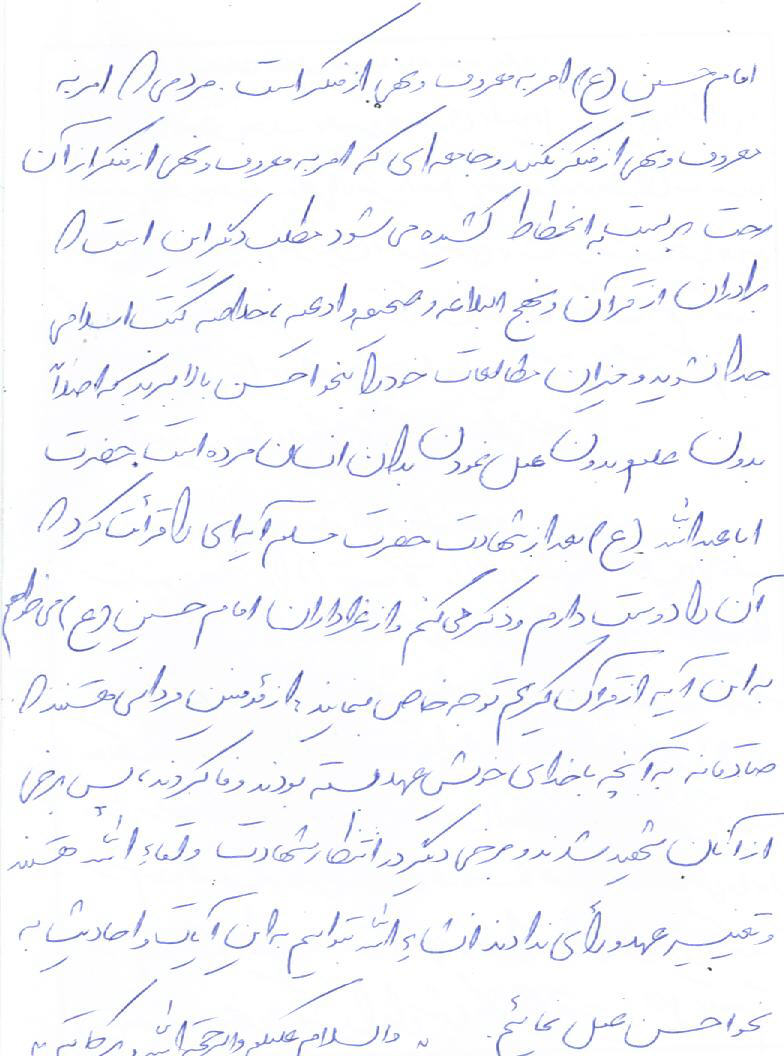 امام حسین (ع) امر به معروف و نهی از منکر است. مردمی که امر به
معروف و نهی از منکر نکنند و جامعه‌ای که امر به معروف و نهی از منکر از آن
رخت بربست به انحطاط کشیده می شود مطلب دیگر این است که
برادران از قرآن و نهج البلاغه و صحیفه و ادعیه، خلاصه کتب اسلامی
جدا نشوید و میزان مطالعات خود را بنحو احسن بالا ببرید که اصلاً
بدون علم و بدون عمل نمودن بدان انسان مرده است. حضرت
اباعبدالله (ع) بعد از شهادت حضرت مسلم آیه‌ای را قرائت کرد که
آن را دوست دارم و ذکر می کنم و از عزاداران امام حسین (ع) می خواهم
به این آیه از قرآن کریم توجه خاص بنمایند، از مؤمنین مردانی هستند که
صادقانه به آنچه با خدای خویش عهد بسته بودند وفا کردند، پس برخی
از آنان شهید شدند و برخی دیگر در انتظار شهادت و لقاء الله هستند
و تغییر عهد و رأی ندادند انشاءالله بتوانیم به این آیات و احادیث به
نحو احسن عمل نمائیم. والسلام علیکم و الرحمة الله و برکاته